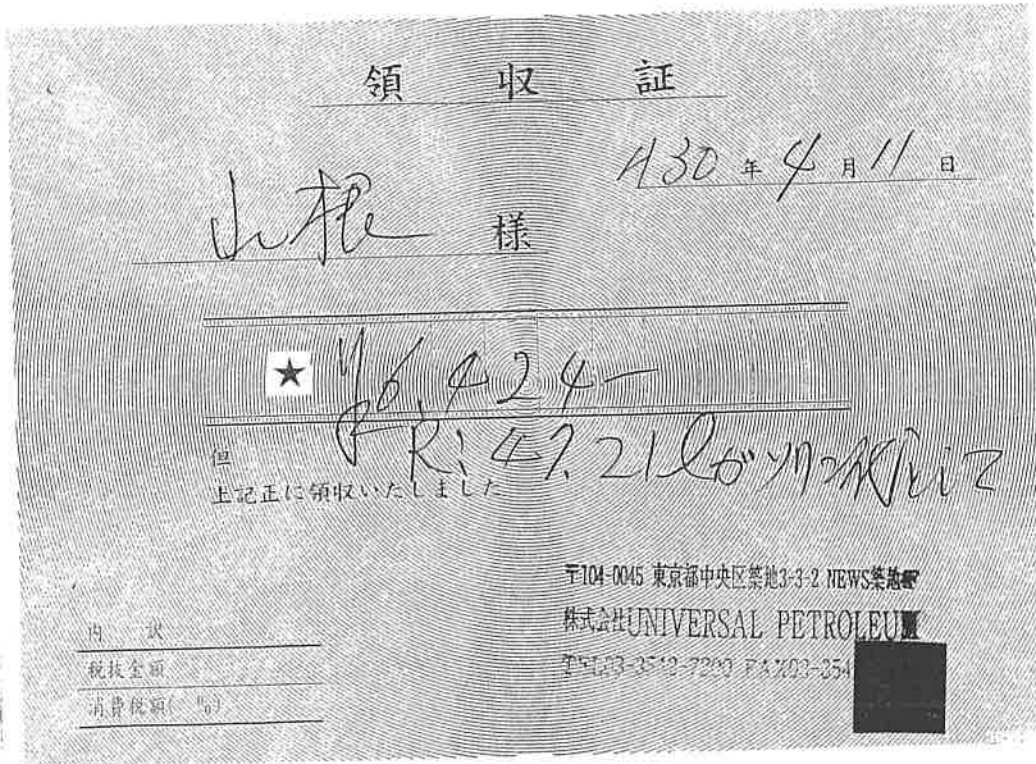 領収証
H30年4月11日
山根 様
★ ¥6,424-
但 R: 47.21ℓガソリン代として
上記正に領収いたしました
〒104-0045 東京都中央区築地3-3-2 NEWS築地
株式会社UNIVERSAL PETROLEUM
内訳
税抜金額
消費税額( %)